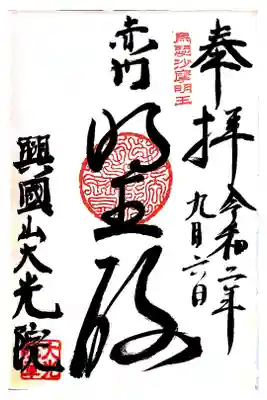 奉拝
令和二年
九月六日
烏瑟沙摩明王
赤門
明王殿
興國山大光院